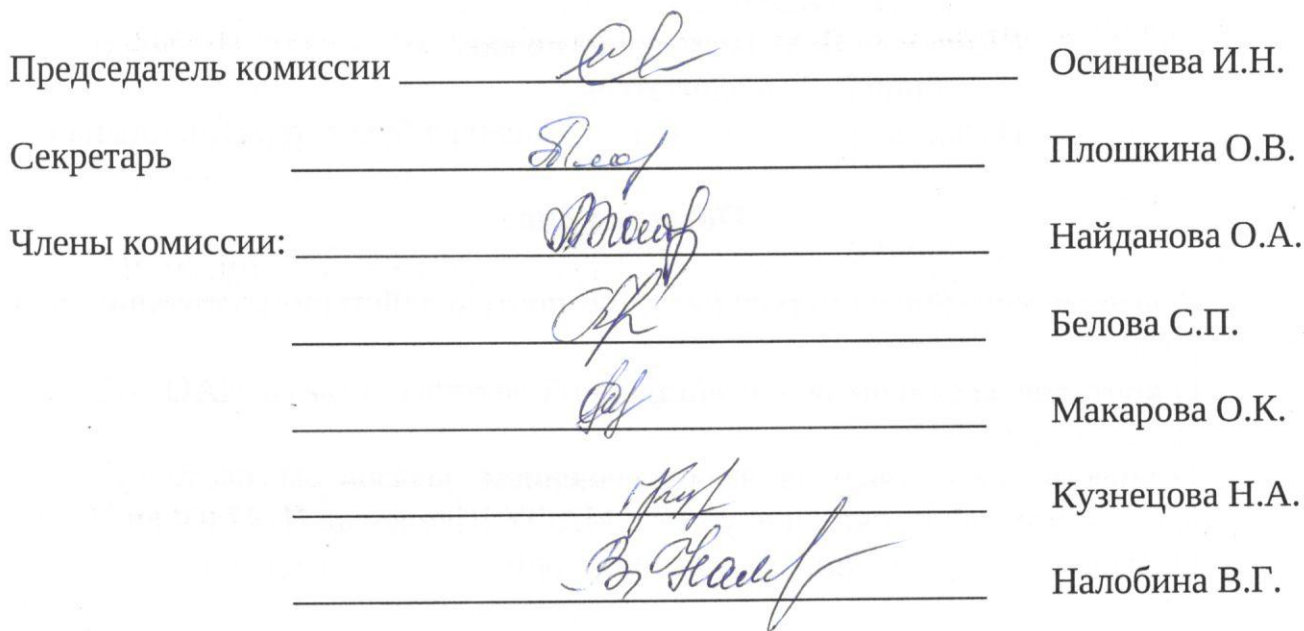 Председатель комиссии Осинцева И.Н.
Секретарь Плошкина О.В.
Члены комиссии: Найданова О.А.
Белова С.П.
Макарова О.К.
Кузнецова Н.А.
Налобина В.Г.